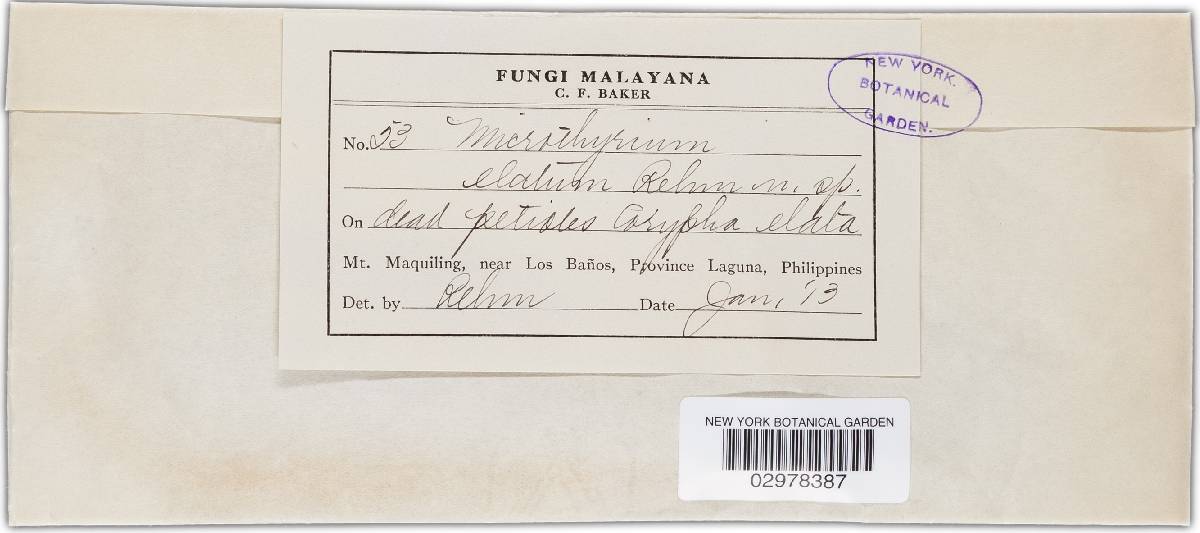 FUNGI MALAYANA
C. F. BAKER
No. 53 Microthyrium
elatum Rehm n. sp.
On dead petioles Corypha elata
Mt. Maquiling, near Los Baños, Province Laguna, Philippines
Det. by Rehm Date Jan, '13
NEW YORK.
BOTANICAL
GARDEN.
NEW YORK BOTANICAL GARDEN
02978387